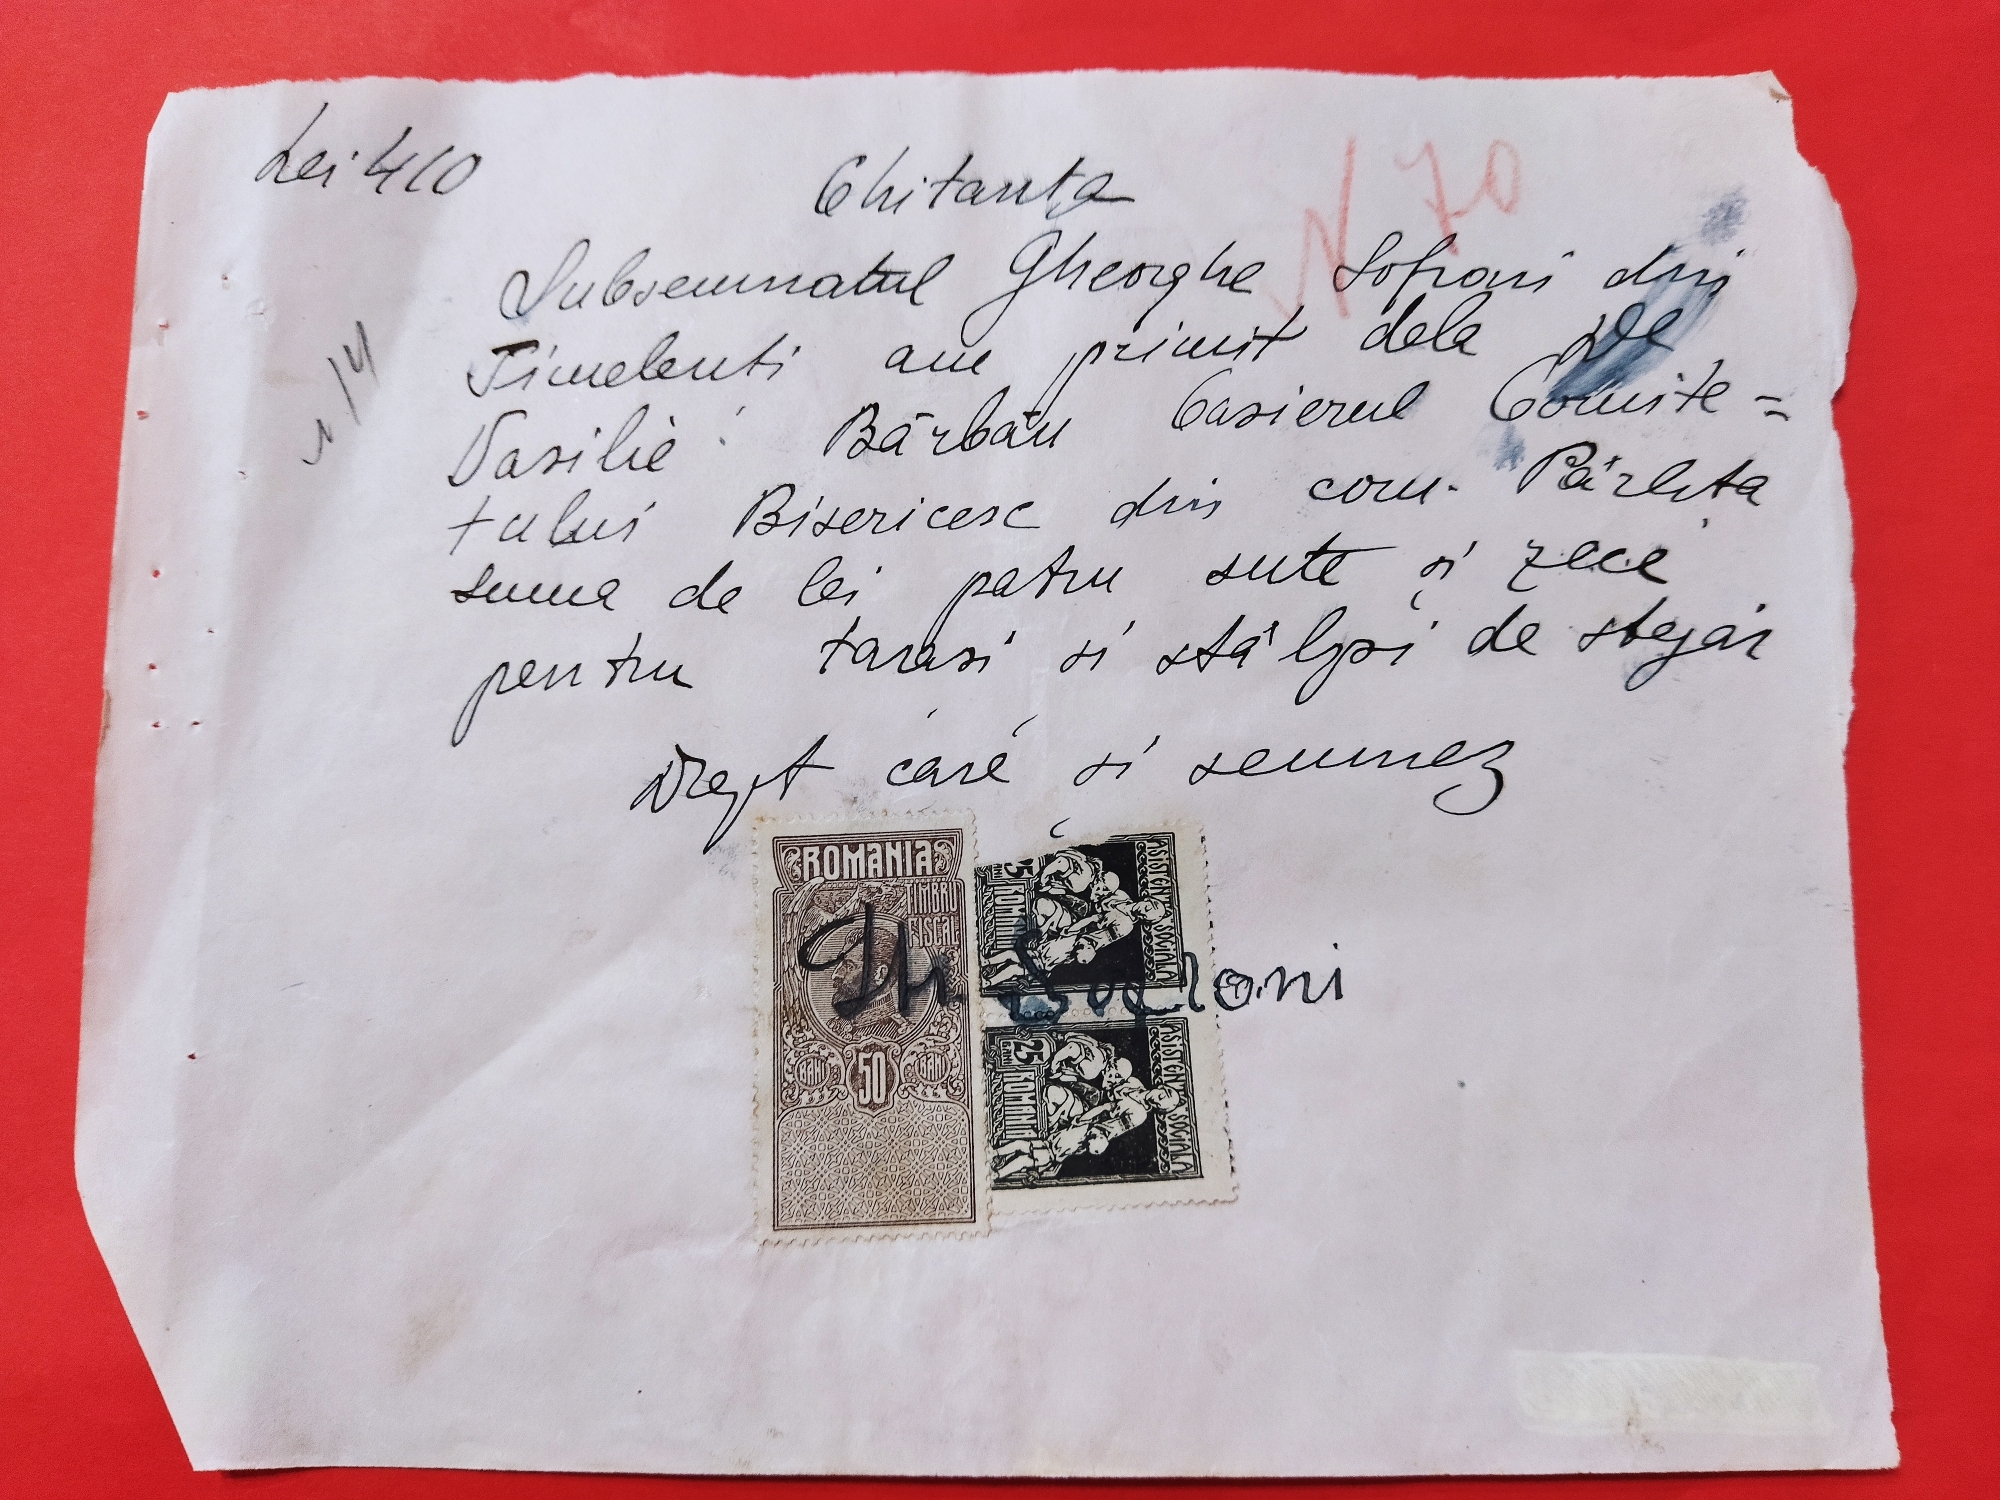 Lei 410
Chitanta
N 70
Subsemnatul Gheorghe Sofroni din
Timelenti am primit dela
Vasilie Bărbău Casierul Comite=
tului Bisericesc din com. Pârlița
suma de lei patru sute și zece
pentru tarași si stâlpi de stejar
Drept care și semnez
ROMANIA
TIMBRU
FISCAL
BANI 50 BANI
25 BANI
ROMANIA
ASISTENȚA SOCIALA
25 BANI
ROMANIA
ASISTENȚA SOCIALA
Gh Sofroni